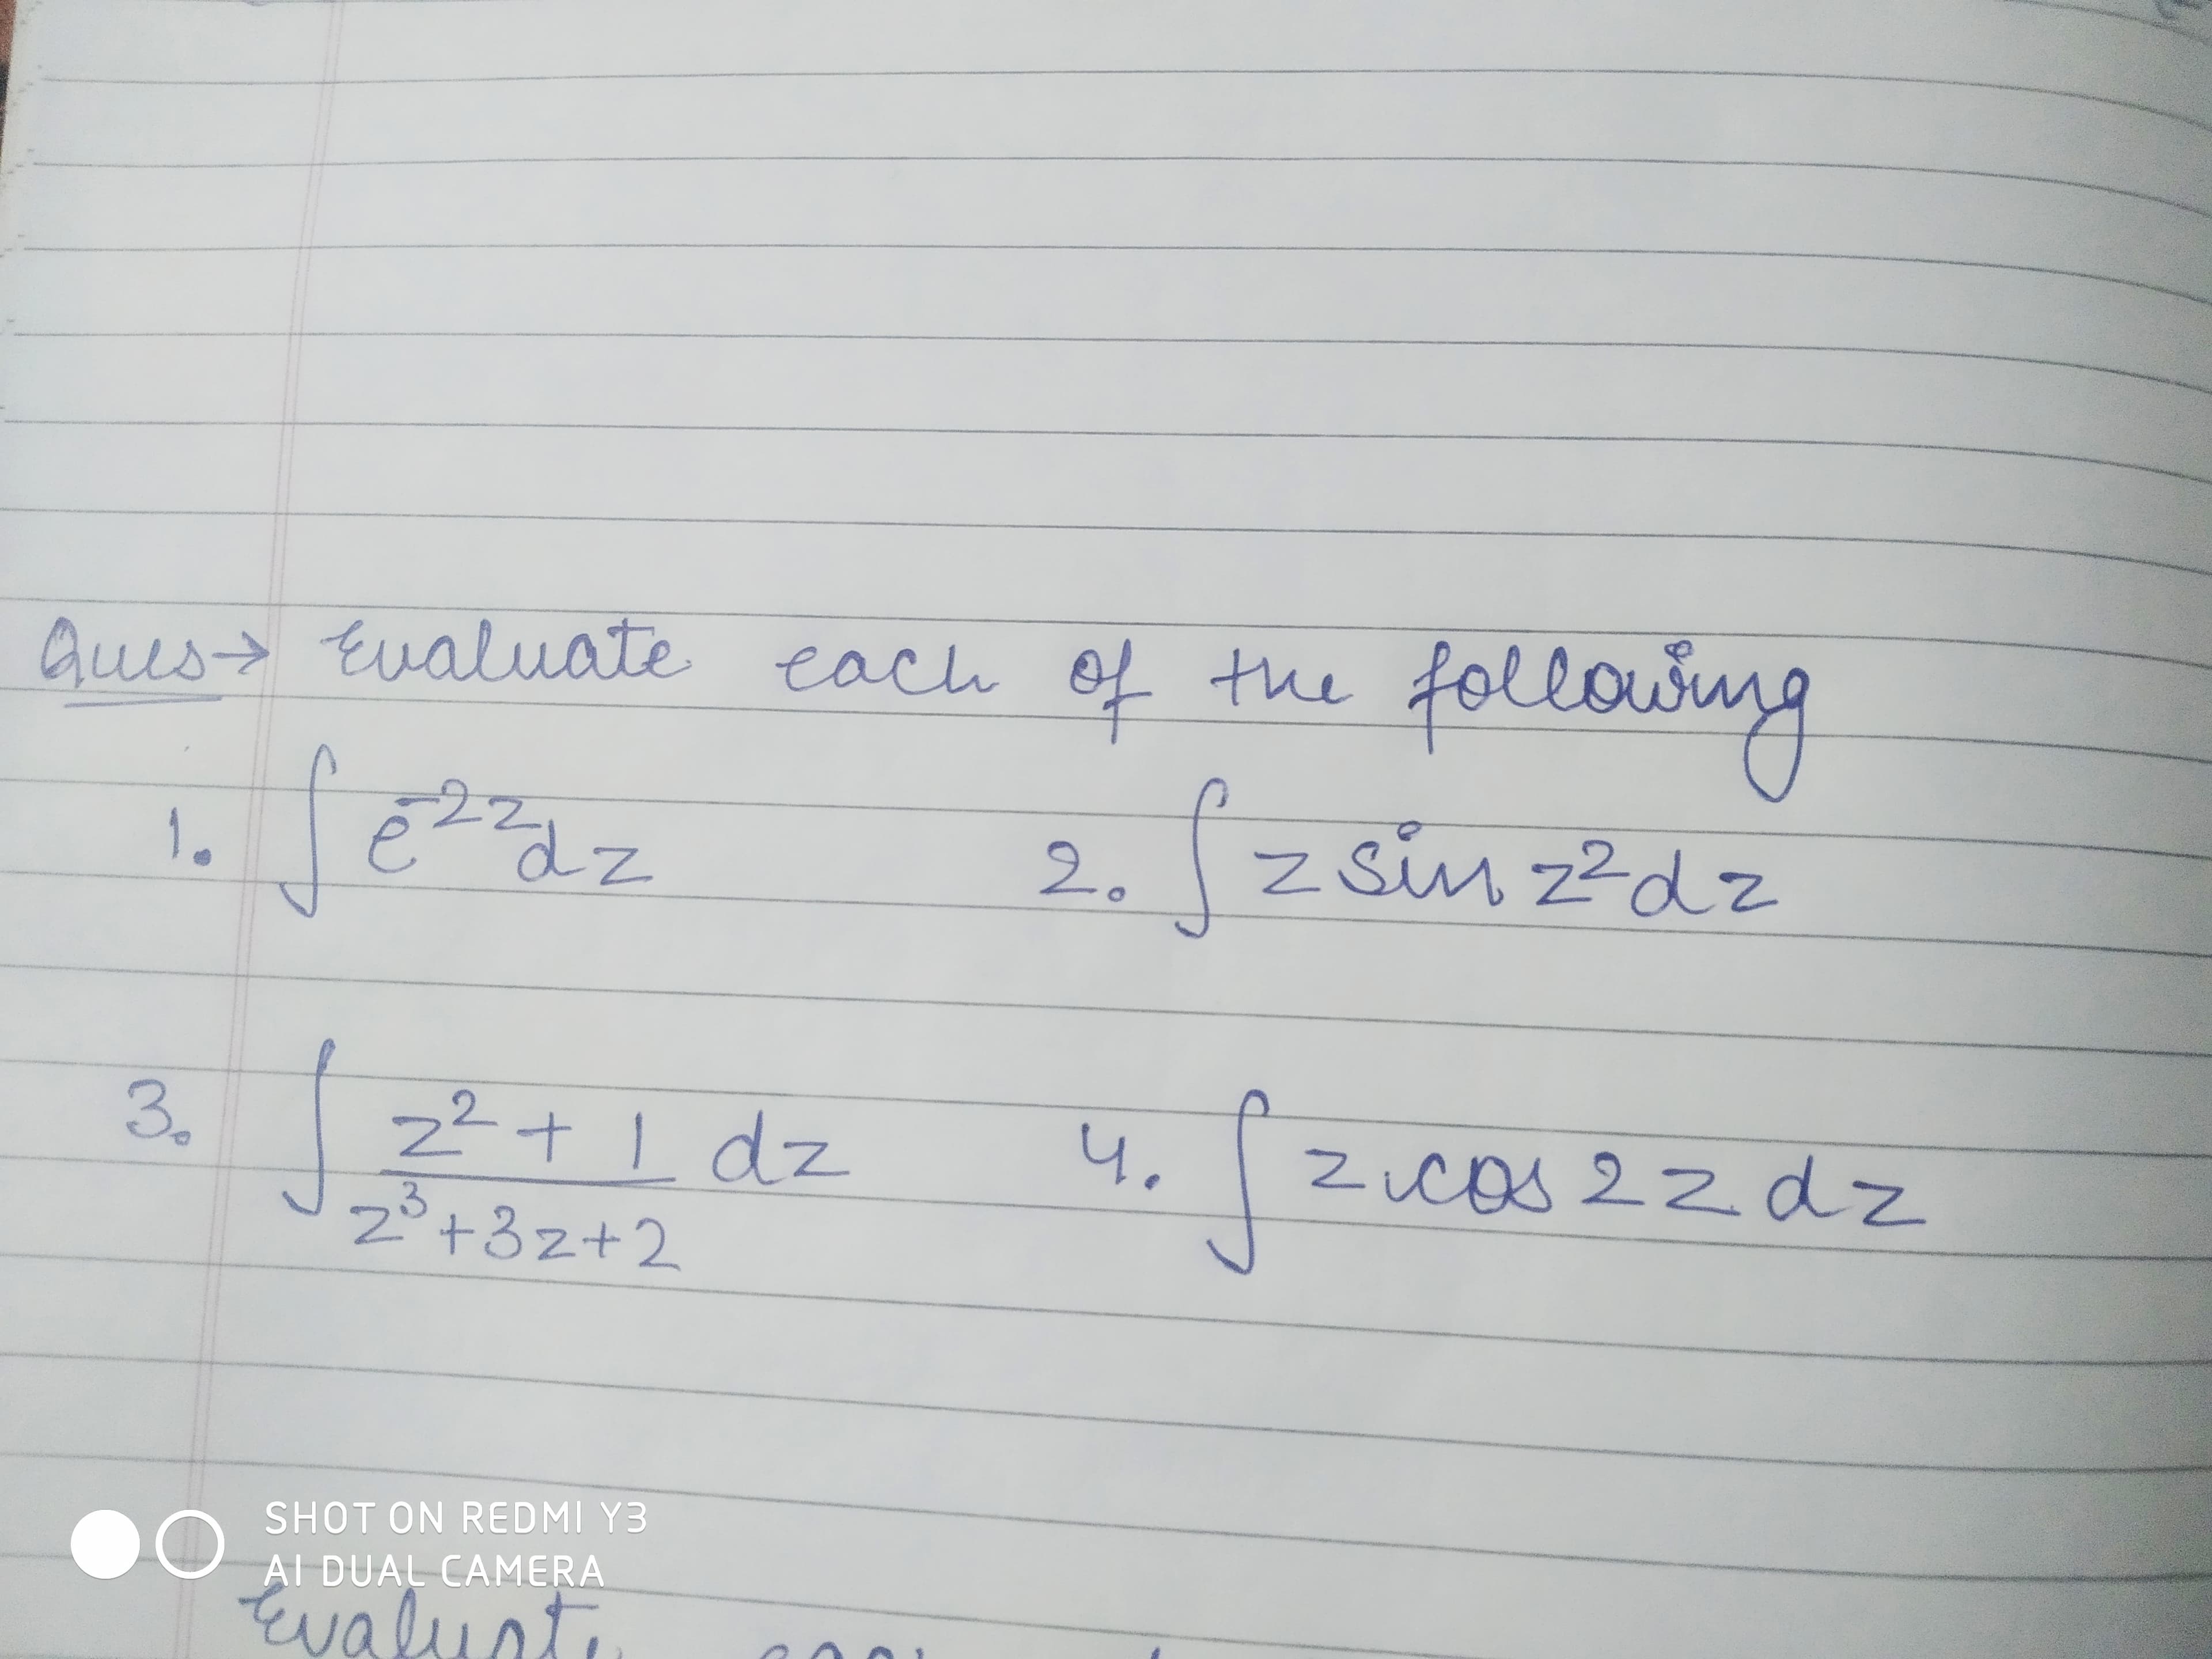 Ques→ Evaluate each of the following
1. ∫ e⁻²ᶻ dz 2. ∫ z sin z² dz
3. ∫ (z² + 1)/(z³ + 3z + 2) dz 4. ∫ z cos 2z dz
SHOT ON REDMI Y3
AI DUAL CAMERA
Evaluate